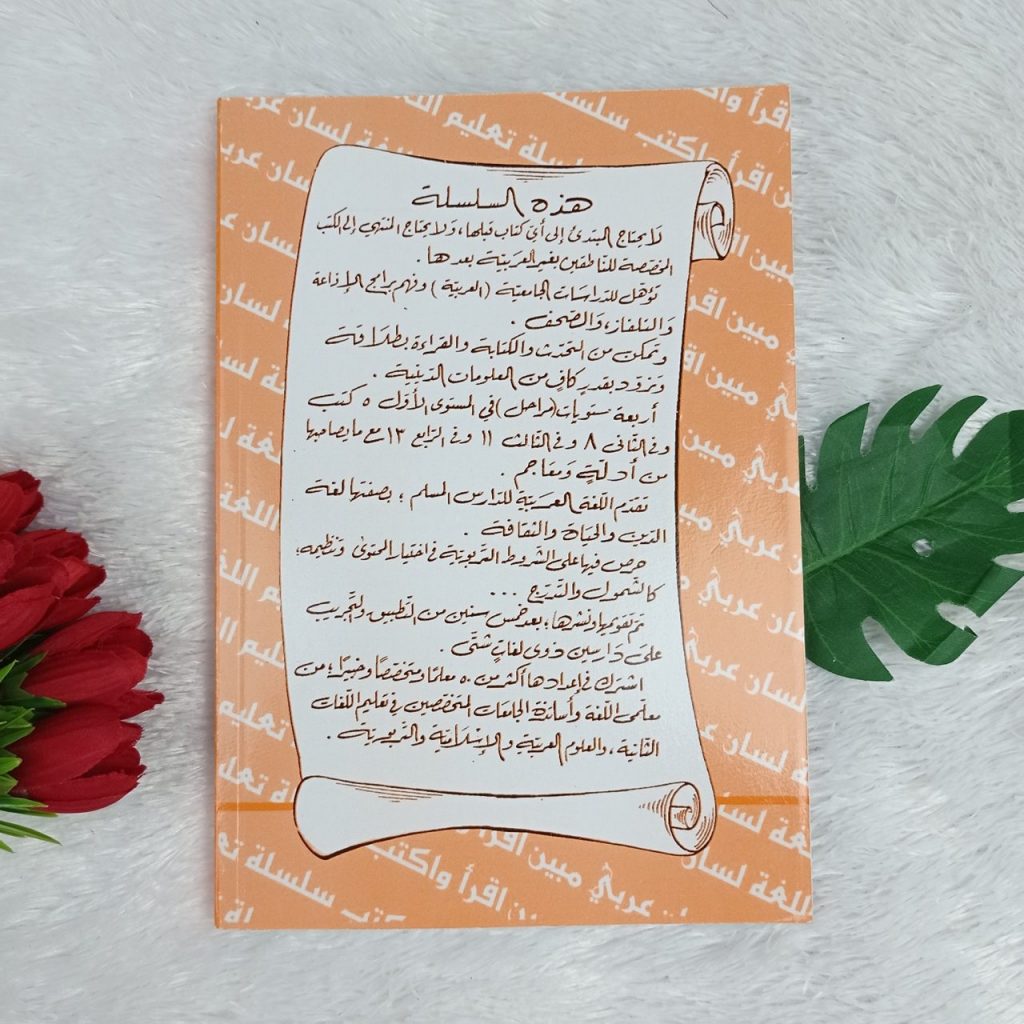 هذه السلسلة
لَا يحتاج المبتدئ إلى أيّ كتاب قبلها، وَلا يحتاج المنتهي إلى الكتب
المخصّصة للنّاطقين بغير العربيّة بعدها.
تؤهّل للدّراسَات الجامعيّة (العربيّة) وفهم برامج الإذاعة
وَالتلفاز، وَالصّحف.
وتمكن من التحدّث والكتابة والقراءة بطلَاقة
وتزوّد بقدرٍ كافٍ من العلومات الدّينيّة.
أربعة مستويات (مراحل) في المستوى الأوّل ٥ كتب
وفى الثّانى ٨ وفى الثّالث ١١ وفى الرّابع ١٣ مع ما يصاحبها
من أدلّةٍ وَمعَاجم.
تقدّم اللّغة العَربيّة للدّارس المسلم؛ بصفتها لغة
الدّين والحيَاة والثقافة.
حرص فيها على الشروط التّربويّة فى اختيار المحتوى وتنظيمه؛
كالشّمول والتّدرّج ...
تمّ تقويمها ونشرها؛ بعد خمس سنين من التّطبيق والتّجريب
على دَارسين ذوى لغاتٍ شتّى.
اشترك في إعدادها أكثر من ٥٠ معلمًا ومتخصّصًا وخبيرًا؛ من
معلّمى اللّغة وأساتذة الجامعات المتخصّصين فى تعليم اللّغات
الثّانية، والعلوم العربيّة والإسْلَاميّة والتّربويّة.
سلسلة تعليم اللغة
لسان عربي مبين
اقرأ واكتب